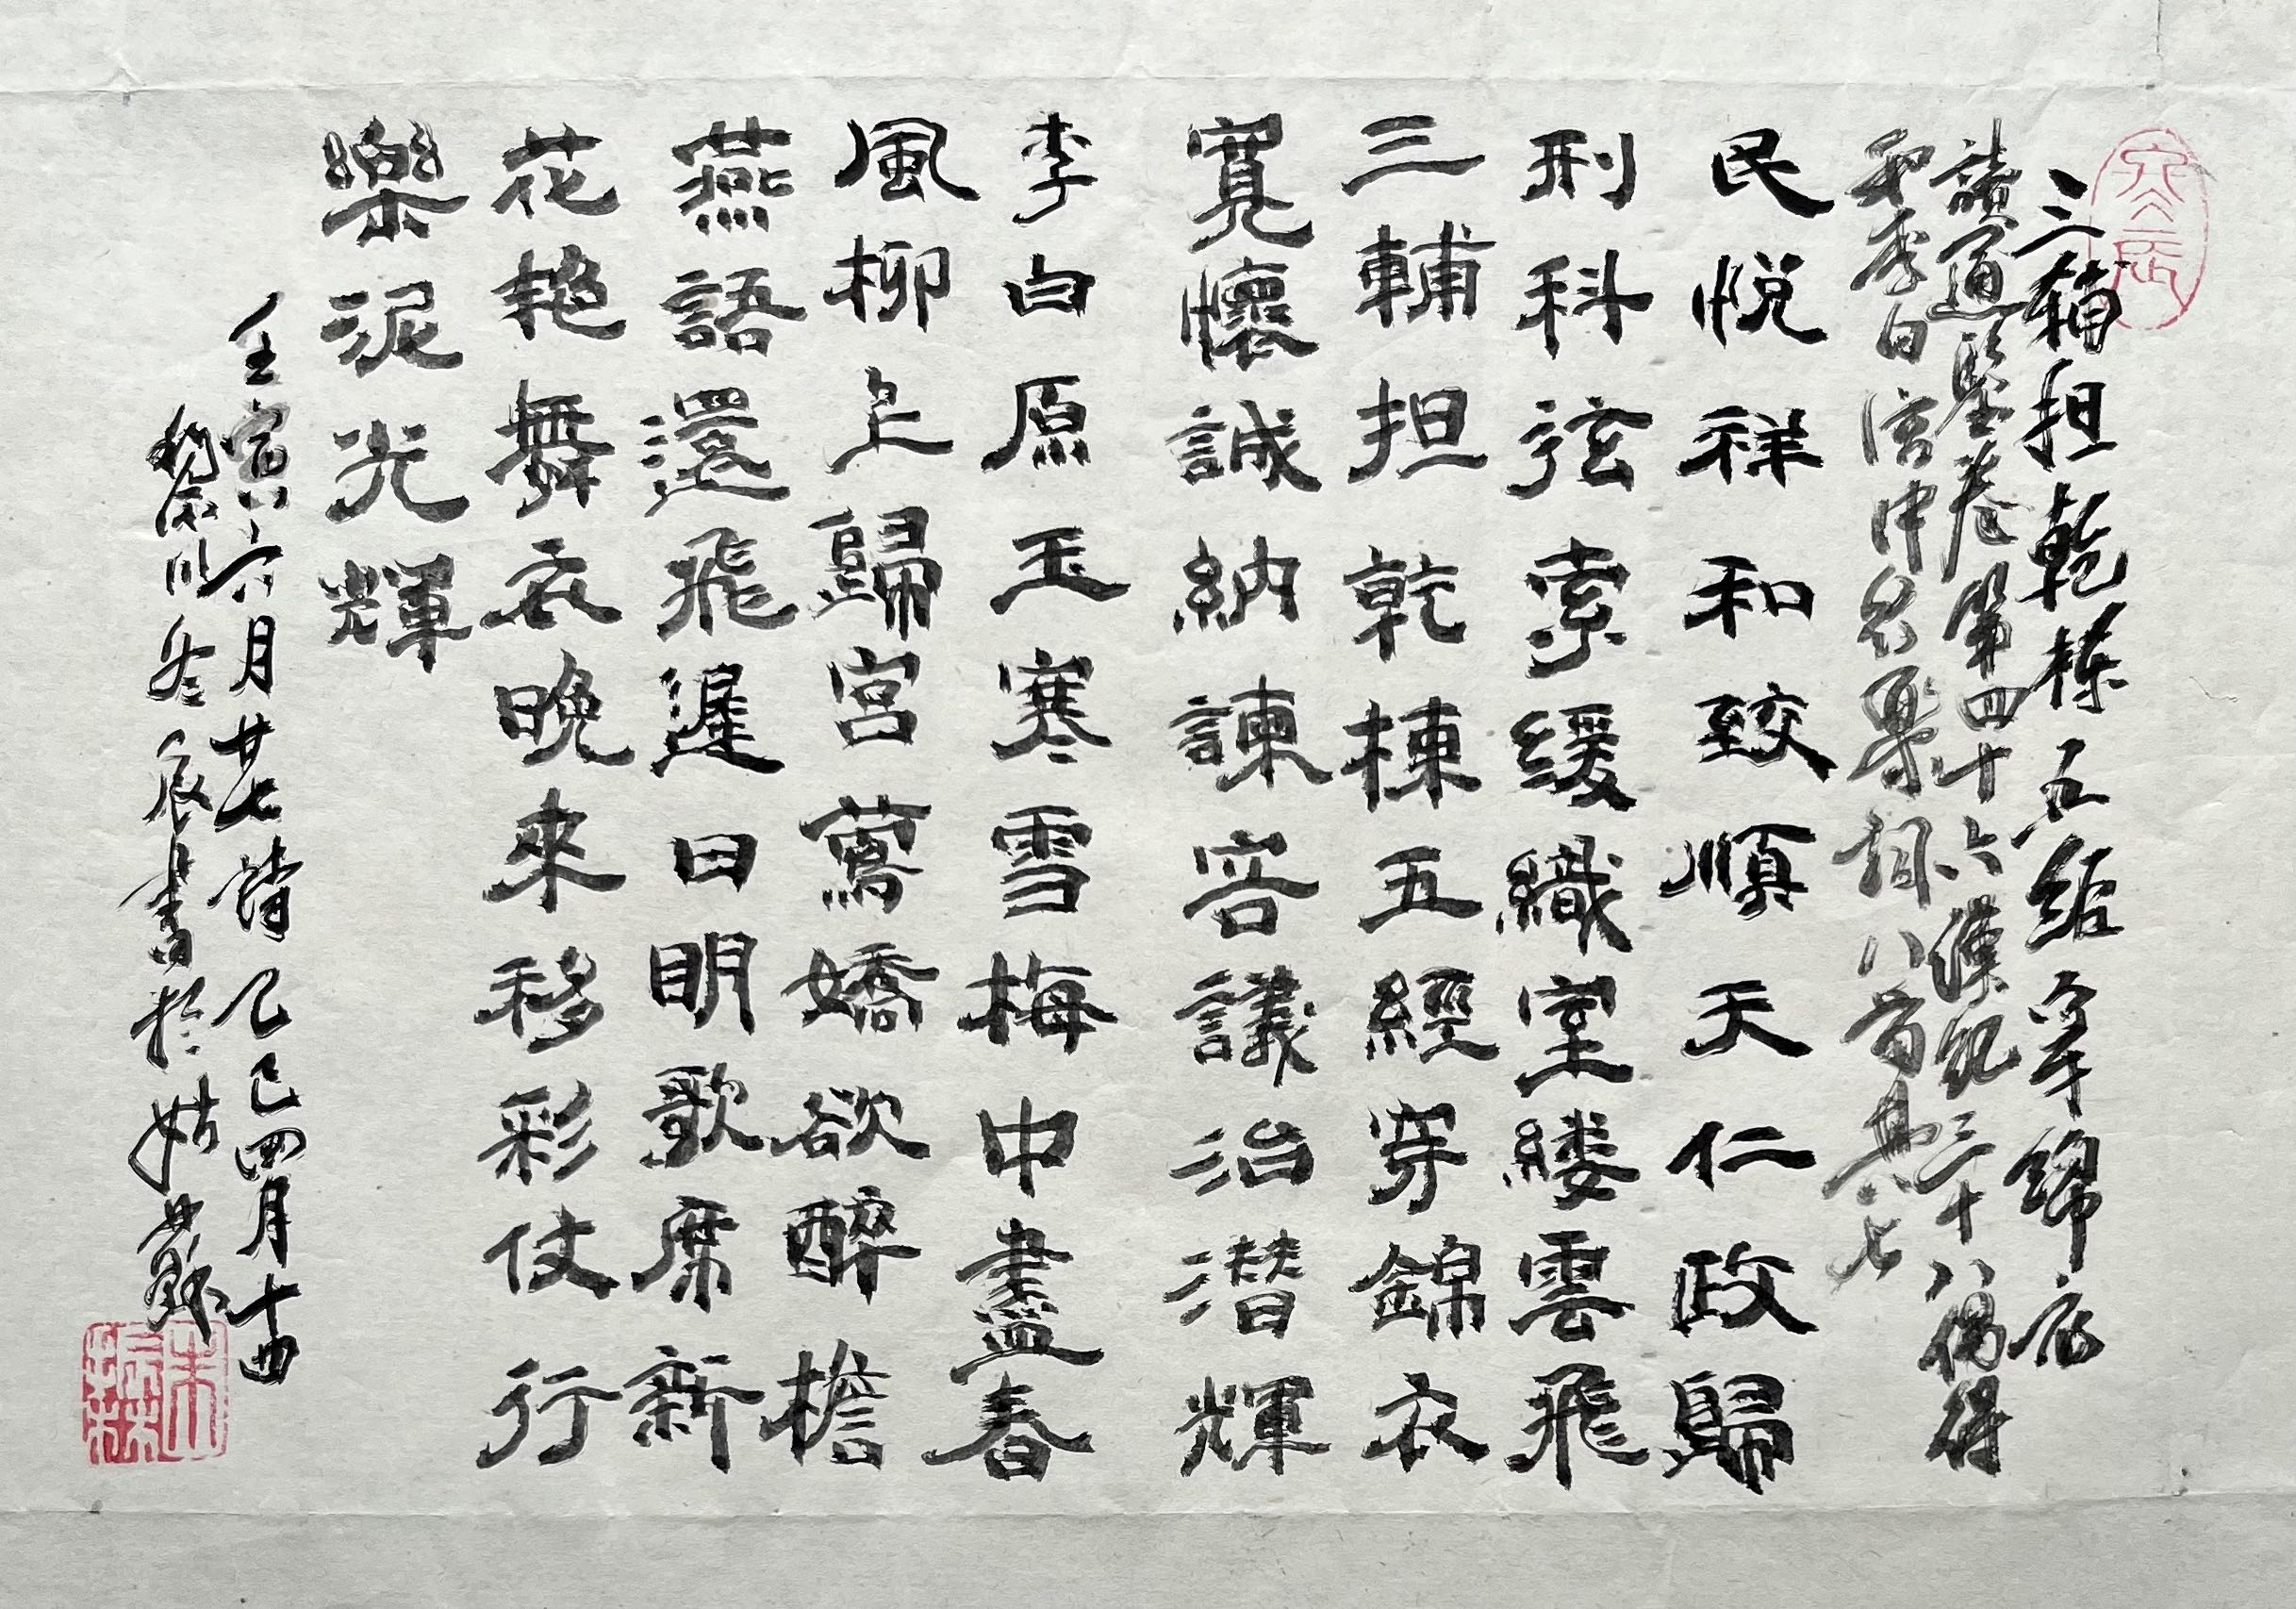 三輔担乾棟五經穿錦衣
讀通鑒卷第四十六漢紀三十八偶得
和李白宮中行樂詞八首其七
民悦祥和致順天仁政歸
刑科弦索緩織室縷雲飛
三輔担乾棟五經穿錦衣
寬懷誠納諫容議治潛輝
李白原玉寒雪梅中盡春
風柳上歸宮鶯嬌欲醉檐
燕語還飛遲日明歌席新
花艳舞衣晚來移彩仗行
樂泥光輝
壬寅六月廿七 乙巳四月十四
書於姑蘇